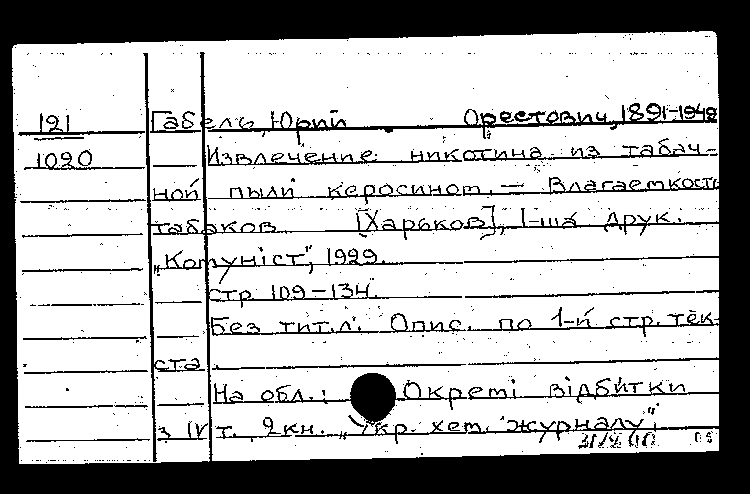 121
1020
Габель, Юрий Орестович, 1891-1949
Извлечение никотина из табач-
ной пыли керосином. — Влагаемкость
табаков [Харьков], 1-ша друк.
„Комуніст", 1929.
стр 109-134.
Без тит. л. Опис. по 1-й стр. тек-
ста.
На обл.: Окремі відбитки
з IV т., 2 кн. „Укр. хем. журналу".